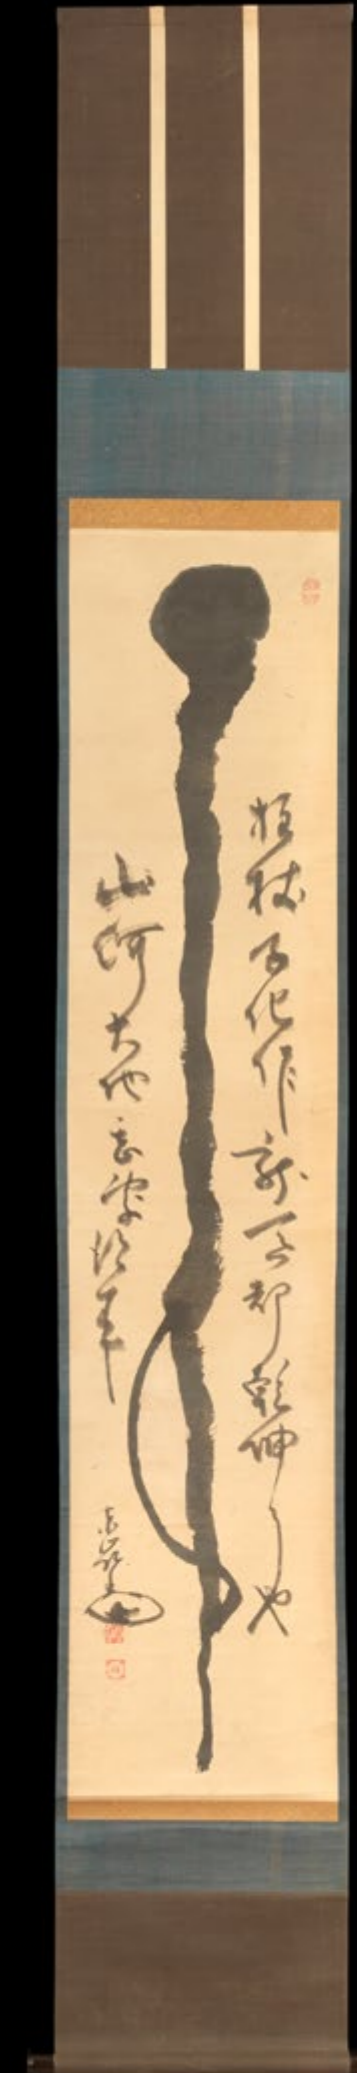 拄杖子化作龍呑却乾坤了也
山河大地甚處得来